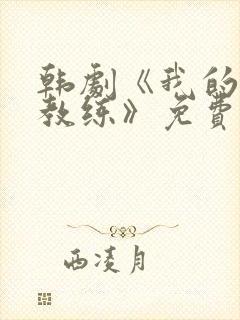 韩劇《我的
教练》免費
西凌月